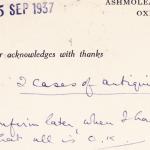 ASHMOLE
5 SEP 1937
OX
r acknowledges with thanks
2 cases of antiqui
nfirm later, when I ha
hat all is O.K.